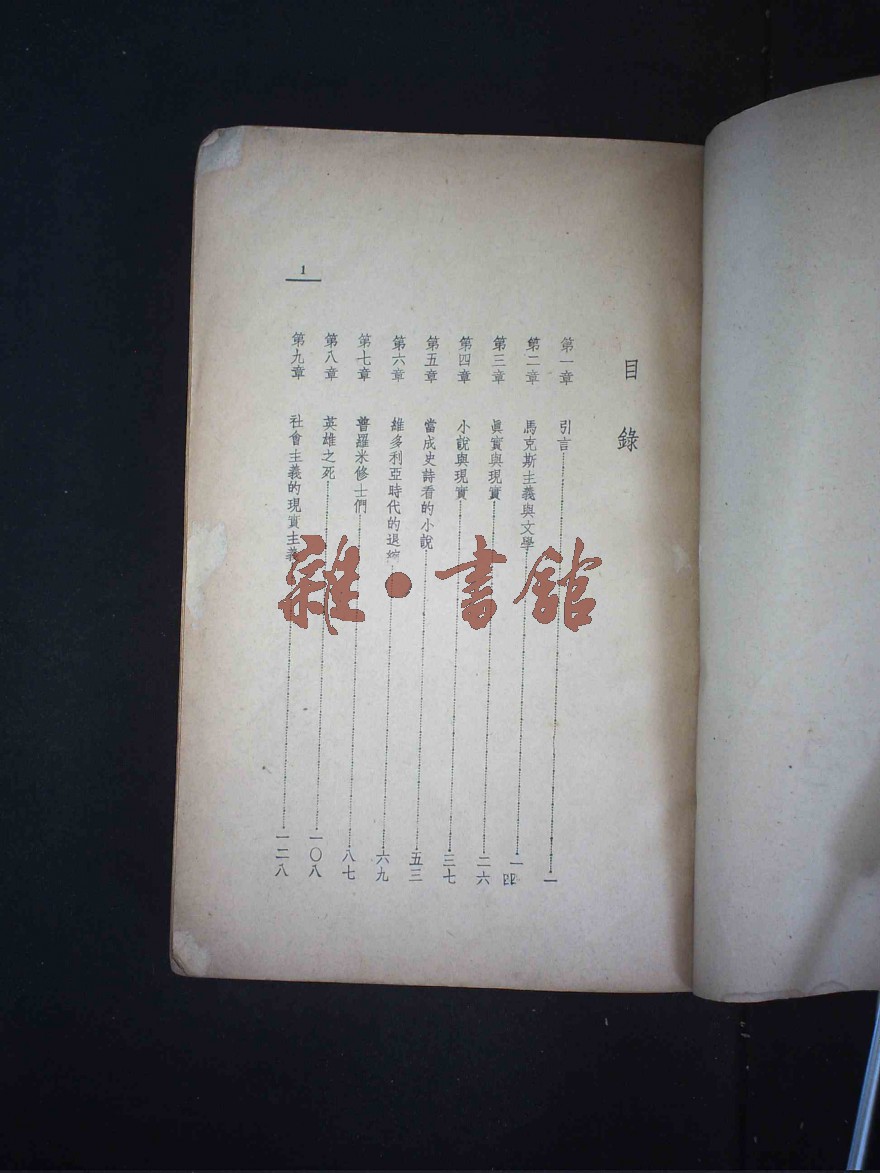 目錄
第一章 引言 一
第二章 馬克斯主義與文學 一四
第三章 眞實與現實 二六
第四章 小說與現實 三七
第五章 當成史詩看的小說 五三
第六章 維多利亞時代的退 六九
第七章 普羅米修士們 八七
第八章 英雄之死 一〇八
第九章 社會主義的現實主義 一二八
1
雜·書館